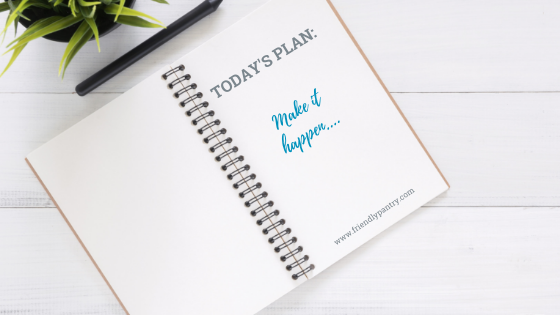 TODAY'S PLAN:
Make it
happen....
www.friendlypantry.com